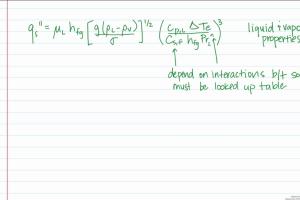 q_s'' = μ_L h_fg [g(ρ_L-ρ_v)/σ]^1/2 (C_P,L ΔT_e / C_s,f h_fg Pr_L^n)^3 liquid + vapor
properties
depend on interactions b/t
must be looked up table